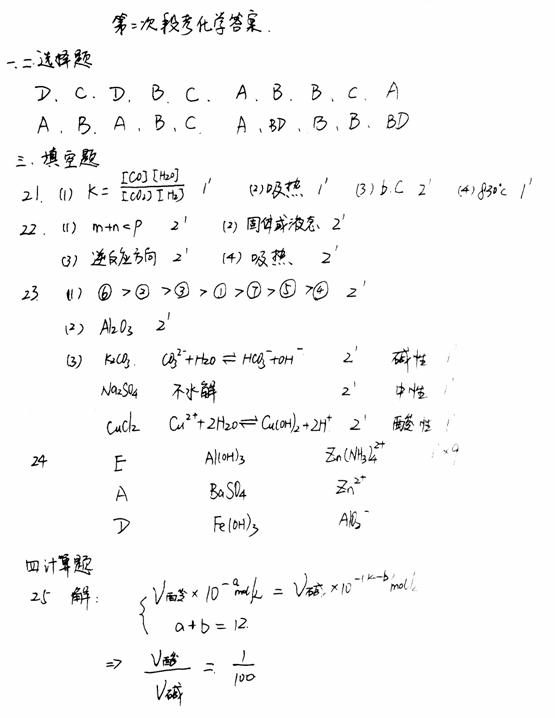 第二次段考化学答案.
一.二选择题
D. C. D. B. C. A. B. B. C. A
A. B. A. B. C A. BD. B. B. BD
三.填空题
21. (1) K = [CO][H2O] / [CO2][H2] 1' (2)吸热 1' (3) b.C 2' (4) 830℃ 1'
22. (1) m+n<p 2' (2) 固体或液态 2'
(3) 逆反应方向 2' (4) 吸热. 2'
23 (1) ⑥>②>③>①>⑦>⑤>④ 2'
(2) Al2O3 2'
(3) K2CO3. CO3²⁻+H2O ⇌ HCO3⁻+OH⁻ 2' 碱性 1'
Na2SO4 不水解 2' 中性 1'
CuCl2 Cu²⁺+2H2O ⇌ Cu(OH)2+2H⁺ 2' 酸性 1'
24 E Al(OH)3 Zn(NH3)4²⁺ 1'×9
A BaSO4 Zn²⁺
D Fe(OH)3 AlO2⁻
四计算题
25 解: V酸×10⁻ᵃmol/L = V碱×10 mol/L
a+b=12.
⇒ V酸/V碱 = 1/100